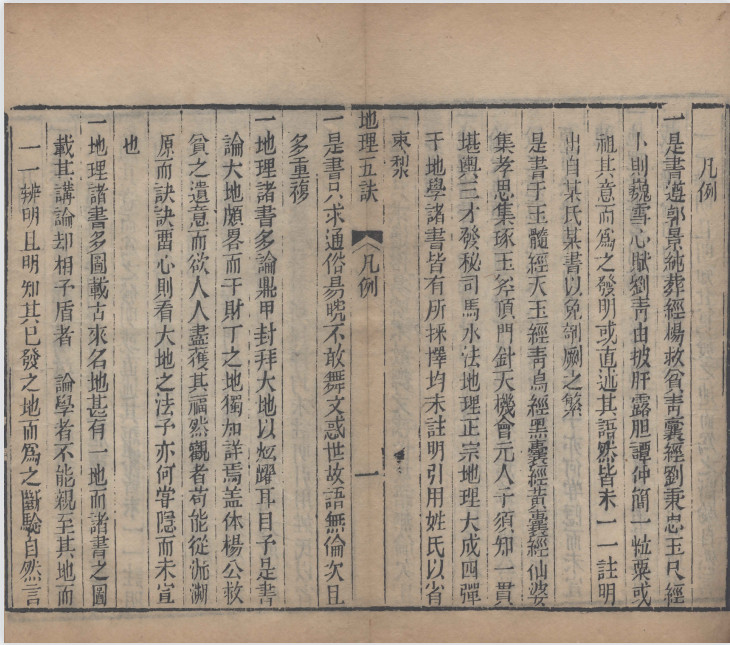 凡例
一是書遵郭景純葬經楊救貧青囊經劉秉忠玉尺經
卜則巍雪心賦劉青田披肝露胆譚仲簡一粒粟或
祖其意而為之發明或直述其語然皆未一一註明
出自某氏某書以免剞劂之繁
是書于玉髓經天玉經青烏經黑囊經黃囊經仙婆
集孝思集琢玉斧頂門針天機會元人子須知一貫
堪輿三才發秘司馬水法地理正宗地理大成四彈
于地學諸書皆有所採擇均未註明引用姓氏以省
棗梨
地理五訣 凡例 一
一是書只求通俗易曉不敢舞文惑世故語無倫次且
多重複
一地理諸書多論鼎甲封拜大地以炫耀耳目予是書
論大地頗畧而于財丁之地獨加詳焉盖体楊公救
貧之遺意而欲人人盡獲其福然觀者苟能從流溯
原而訣訣畱心則看大地之法予亦何嘗隱而未宣
也
一地理諸書多圖載古來名地甚有一地而諸書之圖
載其講論却相予盾者 論學者不能親至其地而
一一辨明且明知其已發之地而為之斷驗自然言